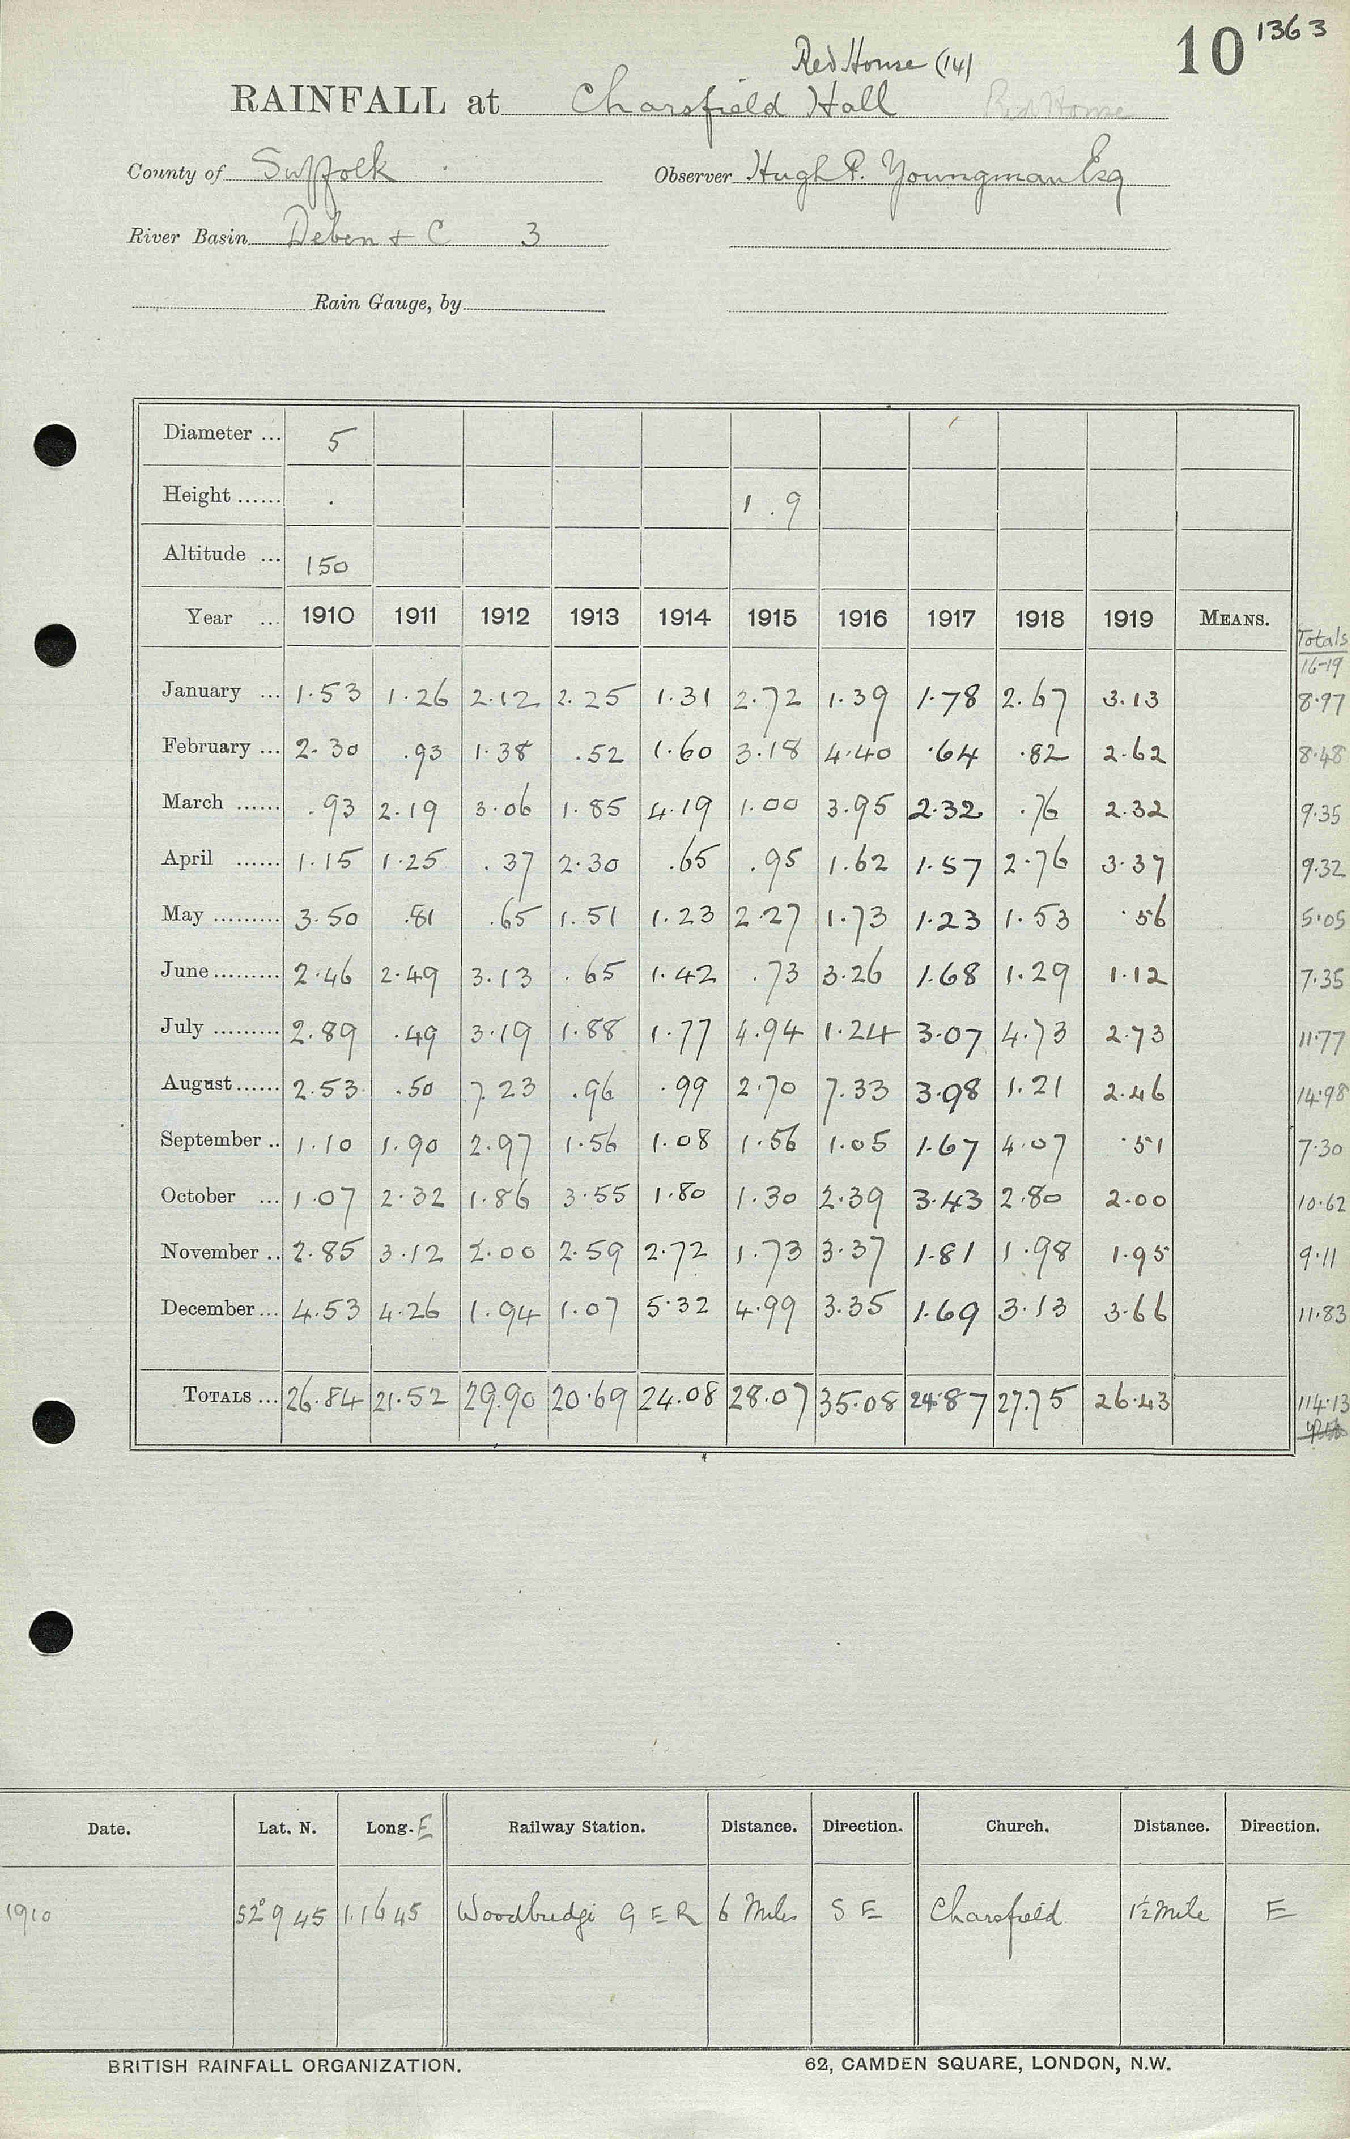 10 1363
Red House (14)
RAINFALL at Charsfield Hall Red House
County of Suffolk Observer Hugh P. Youngman Esq
River Basin Deben & C 3
Rain Gauge, by
Diameter ... 5
Height ...... . 1 . 9
Altitude ... 150
Year ... 1910 1911 1912 1913 1914 1915 1916 1917 1918 1919 MEANS. Totals
16-19
January ... 1.53 1.26 2.12 2.25 1.31 2.72 1.39 1.78 2.67 3.13 8.97
February ... 2.30 .93 1.38 .52 1.60 3.18 4.40 .64 .82 2.62 8.48
March ...... .93 2.19 3.06 1.85 4.19 1.00 3.95 2.32 .76 2.32 9.35
April ...... 1.15 1.25 .37 2.30 .65 .95 1.62 1.57 2.76 3.37 9.32
May ......... 3.50 .81 .65 1.51 1.23 2.27 1.73 1.23 1.53 .56 5.05
June ......... 2.46 2.49 3.13 .65 1.42 .73 3.26 1.68 1.29 1.12 7.35
July ......... 2.89 .49 3.19 1.88 1.77 4.94 1.24 3.07 4.73 2.73 11.77
August ...... 2.53 .50 7.23 .96 .99 2.70 7.33 3.98 1.21 2.46 14.98
September .. 1.10 1.90 2.97 1.56 1.08 1.56 1.05 1.67 4.07 .51 7.30
October ... 1.07 2.32 1.86 3.55 1.80 1.30 2.39 3.43 2.80 2.00 10.62
November .. 2.85 3.12 2.00 2.59 2.72 1.73 3.37 1.81 1.98 1.95 9.11
December ... 4.53 4.26 1.94 1.07 5.32 4.99 3.35 1.69 3.13 3.66 11.83
TOTALS ... 26.84 21.52 29.90 20.69 24.08 28.07 35.08 24.87 27.75 26.43 114.13
Date. Lat. N. Long. E Railway Station. Distance. Direction. Church. Distance. Direction.
1910 52° 9 45 1.16 45 Woodbridge G E R 6 Miles S E Charsfield 1½ Mile E
BRITISH RAINFALL ORGANIZATION. 62, CAMDEN SQUARE, LONDON, N.W.